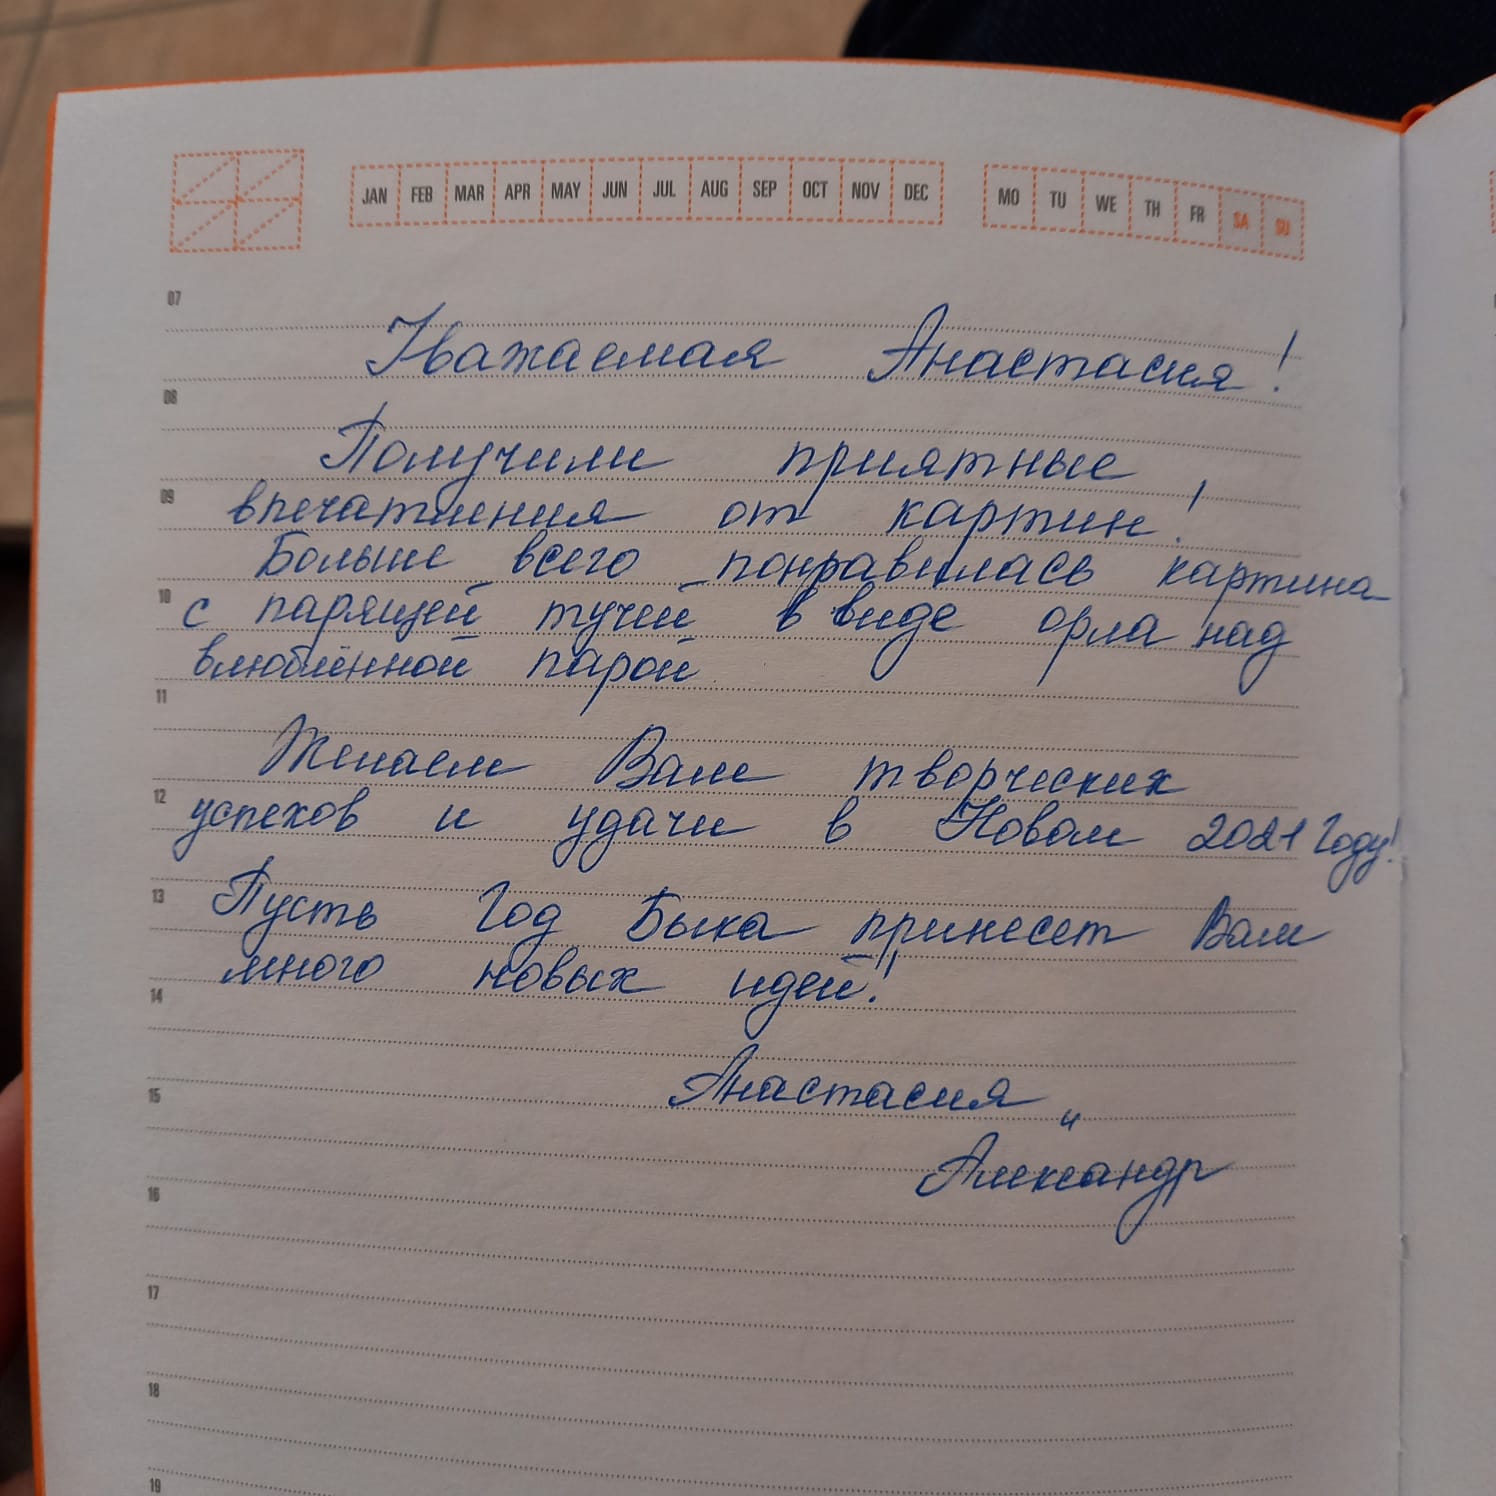 JAN FEB MAR APR MAY JUN JUL AUG SEP OCT NOV DEC MO TU WE TH FR SA SU
07
Уважаемая Анастасия!
08
Получили приятные
09
впечатления от картин!
Больше всего понравилась картина
10
с парящей тучей в виде орла над
влюблённой парой
11
Желаем Вам творческих
12
успехов и удачи в Новом 2021 Году!
13
Пусть Год Быка принесет Вам
много новых идей!
14
Анастасия
15
и
Александр
16
17
18
19